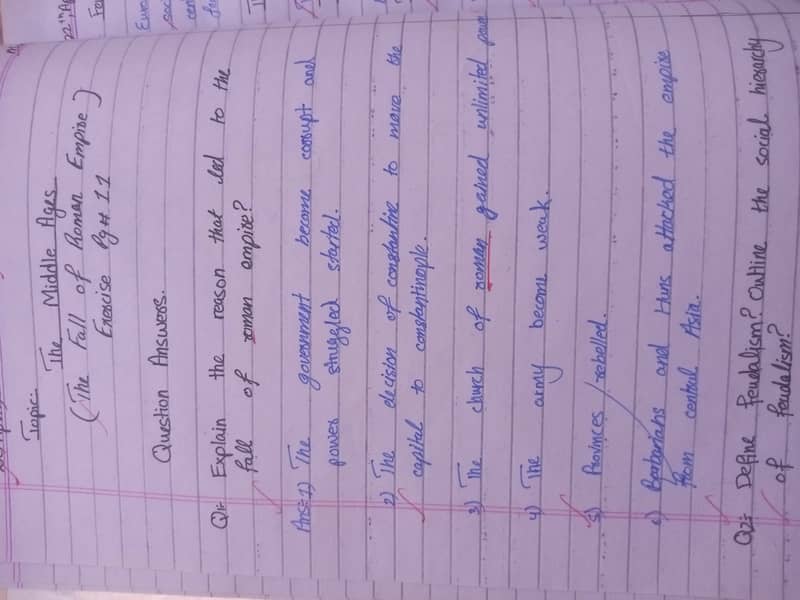 Topic:
The Middle Ages
(The Fall of Roman Empire)
Exercise Pg # 11
Question Answers.
Q1:- Explain the reason that led to the
fall of roman empire?
Ans:- 1) The government become corrupt and
power struggled started.
2) The decision of constantine to move the
capital to constantinople.
3) The church of roman gained unlimited
4) The army become weak.
5) Provinces rebelled.
6) Barbarians and Huns attacked the empire
from central Asia.
Q2:- Define feudalism? Outline the social hierarchy
of feudalism?